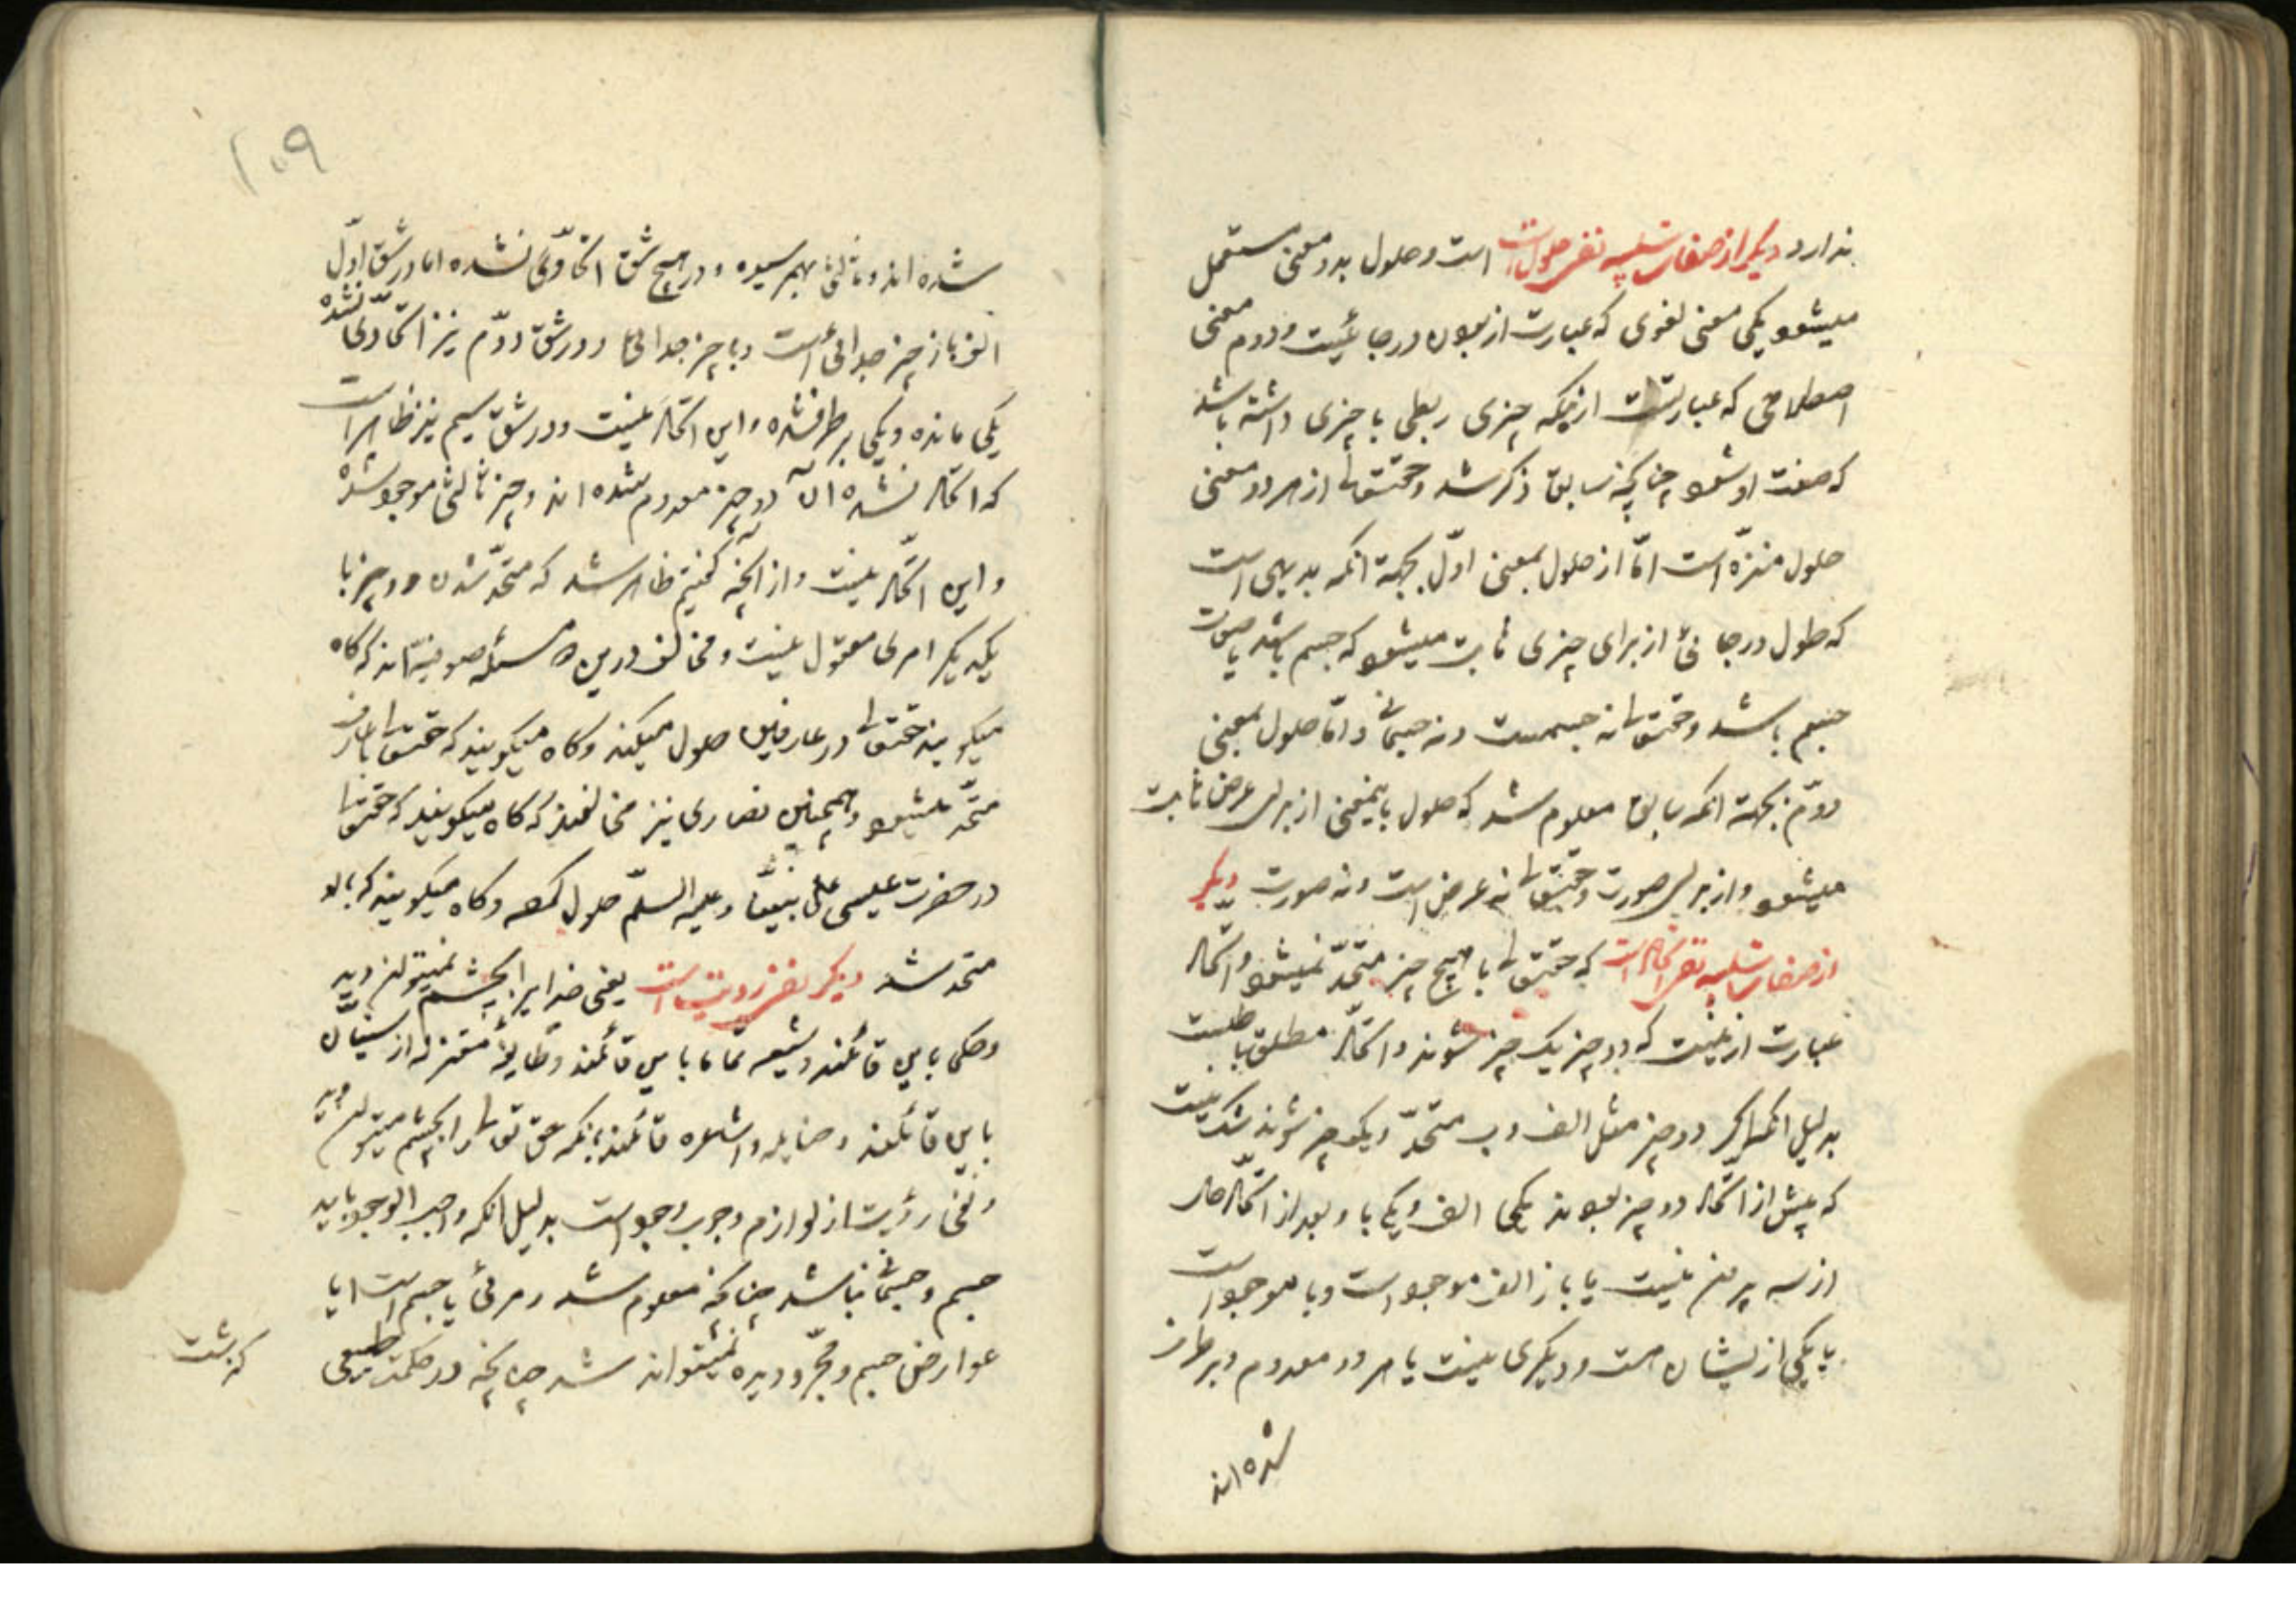 ندارد دیگر از صفات سلبیه نفی حلول است است و حلول بدو معنی مستعمل
میشود یکی معنی لغوی که عبارت از بودن در جائیست و دوم معنی
اصطلاحی که عبارتست ازینکه چیزی ربطی با چیزی داشته باشد
که صفت او شود چنانچه سابق ذکر شد و حقتعالی از هر دو معنی
حلول منزّه است امّا از حلول بمعنی اوّل بجهة انکه بدیهی است
که حلول در جائی از برای چیزی ثابت میشود که جسم باشد یا صورت
جسم باشد و حقتعالی نه جسمست و نه جسمانی و امّا حلول بمعنی
دوّم بجهة انکه سابق معلوم شد که حلول باینمعنی از برای عرض ثابت
میشود و از برای صورت و حقتعالی نه عرض است و نه صورت دیگر
از صفات سلبیه نفی اتحاد است که حقتعالی با هیچ چیز متّحد نمیشود و اتحاد
عبارت ازینست که دو چیز یک چیز شوند و اتحاد مطلق باطلست
بدلیل انکه اگر دو چیز مثل الف و ب متّحد و یکچیز شوند شک نیست
که پیش از اتحاد دو چیز بودند یکی الف و یکی با و بعد از اتحاد حال
از سه بیرون نیست یا باز الف موجود است و با موجود است
یا یکی از ایشان هست و دیگری نیست یا هر دو معدوم و برطرف
شده اند
۱۰۹
شده اند و ثالثی بهم رسیده و در هیچ شق اتحادی نشده اما در شق اوّل
الف باز چیز جدائی است و با چیز جدائی و در شق دوّم نیز اتحادی نشده
یکی مانده و یکی برطرف شده و این اتحاد نیست و در شق سیم نیز ظاهر است
که اتحاد نشده ان دو چیز معدوم شده اند و چیز ثالثی موجود شده
و این اتحاد نیست و از انچه گفتیم ظاهر شد که متحد شدن دو چیز با
یکدیگر امری معقول نیست و مخالف درین مسئله صوفیه اند که گاه
میگویند حقتعالی در عارفین حلول میکند و گاه میگویند که حقتعالی با عارف
متّحد میشود و همچنین نصاری نیز مخالفند که گاه میگویند که حقتعالی
در حضرت عیسی علی نبینا و علیه السلام حلول کرده و گاه میگویند که با او
متحد شد دیگر نفی رؤیت است یعنی خدایرا بچشم نمیتوان دید
و حکما باین قائلند و شیعه تماما باین قائلند و طایفۀ معتزله از سنّیان
باین قائلند و حنابله و اشاعره قائلند بانکه حق تعالی را بچشم میتوان دید
و نفی رؤیت از لوازم وجوب وجود است بدلیل انکه واجب الوجود باید
جسم و جسمانی نباشد چنانچه معلوم شد و مرئی یا جسم است یا
عوارض جسم و مجرّد دیده نمیتواند شد چنانچه در حکمت طبیعی